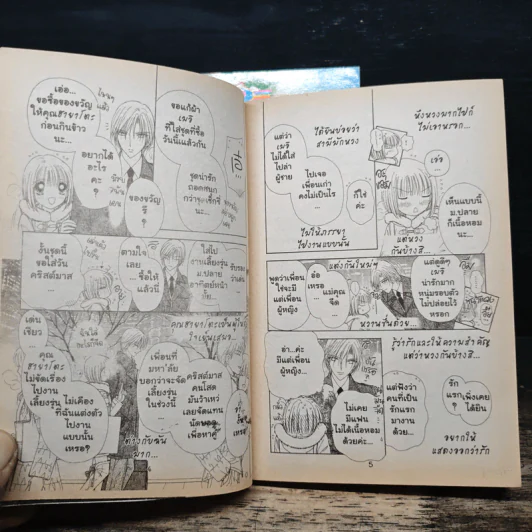 เอ่อ...
ขอซื้อของขวัญ
ให้คุณฮายาโตะ
ก่อนกินข้าว
นะ...
อยากได้
อะไร
คะ
?
ของขวัญ
รึ
...
ขอแก้ผ้า
เมจิ
ที่ใส่ชุดที่ซื้อ
วันนี้แล้วกัน
ชุดน่ารัก
ถอดสนุก
กว่าชุดเซ็กซี่
นะ...
งั้นชุดนี้
ขอใส่วัน
คริสต์มาส
...
ตามใจ
เลย
ซื้อให้
แล้วนี่
ใส่ไป
งานเลี้ยงรุ่น
ม.ปลาย
อาทิตย์หน้า
ก็ย...
เด่น
เชียว
คุณ
ฮายาโตะ
ไม่ขัดเรื่อง
ไปงาน
เลี้ยงรุ่น
...
ไม่เคือง
ที่ฉันแต่งตัว
ไปงาน
แบบนั้น
เหรอ?
คุณฮายาโตะเป็นผู้ใหญ่
เพื่อนที่
มหา'ลัย
บอกว่าจะจัด
เลี้ยงรุ่น
ในช่วงนี้
...
คริสต์มาส
คนโสด
มันว้าเหว่
เลยจัดแทน
นัดบอด
เพื่อหาคู่
ต่างกับฉัน
มาก...
หึงหวงมากไปก็
ไม่เอาหรอก...
ได้ยินบ่อยว่า
สามีมักหวง
ไม่ให้ภรรยา
ไปงานแบบนั้น
แต่ว่า
เมจิ
ไม่ได้ใส่
ไปล่า
ผู้ชาย
ไปเจอ
เพื่อนเก่า
คงไม่เป็นไร
...
ก็ใช่
ค่ะ
เอ๋อ
เห็นแบบนี้
ม.ปลาย
ก็เนื้อหอม
นะ...
แต่หวง
กันบ้างสิ...
แต่งกันใหม่ๆ
พูดว่าเพื่อน
ใช่จะมี
แต่เพื่อน
ผู้หญิง
อ๋อ
เหรอ
...
แม่คุณ
จี๊ด
แต่ดีดีๆ
เมจิ
น่ารักมาก
หนุ่มรอบตัว
ไม่ปล่อยไว้
หรอก
...
รู้ว่ารักและให้ความสำคัญ
แต่ว่าหวงกันบ้างสิ...
อ่า...ค่ะ
มีแต่เพื่อน
ผู้หญิง...
ไม่เคย
มีแฟน
ไม่ได้เนื้อหอม
ด้วยค่ะ...
แต่ฟังว่า
คนที่เป็น
รักแรก
มางาน
ด้วย...
รัก
แรก
?
เพิ่งเคย
ได้ยิน
อยากให้
แสดงออกว่ารัก
5